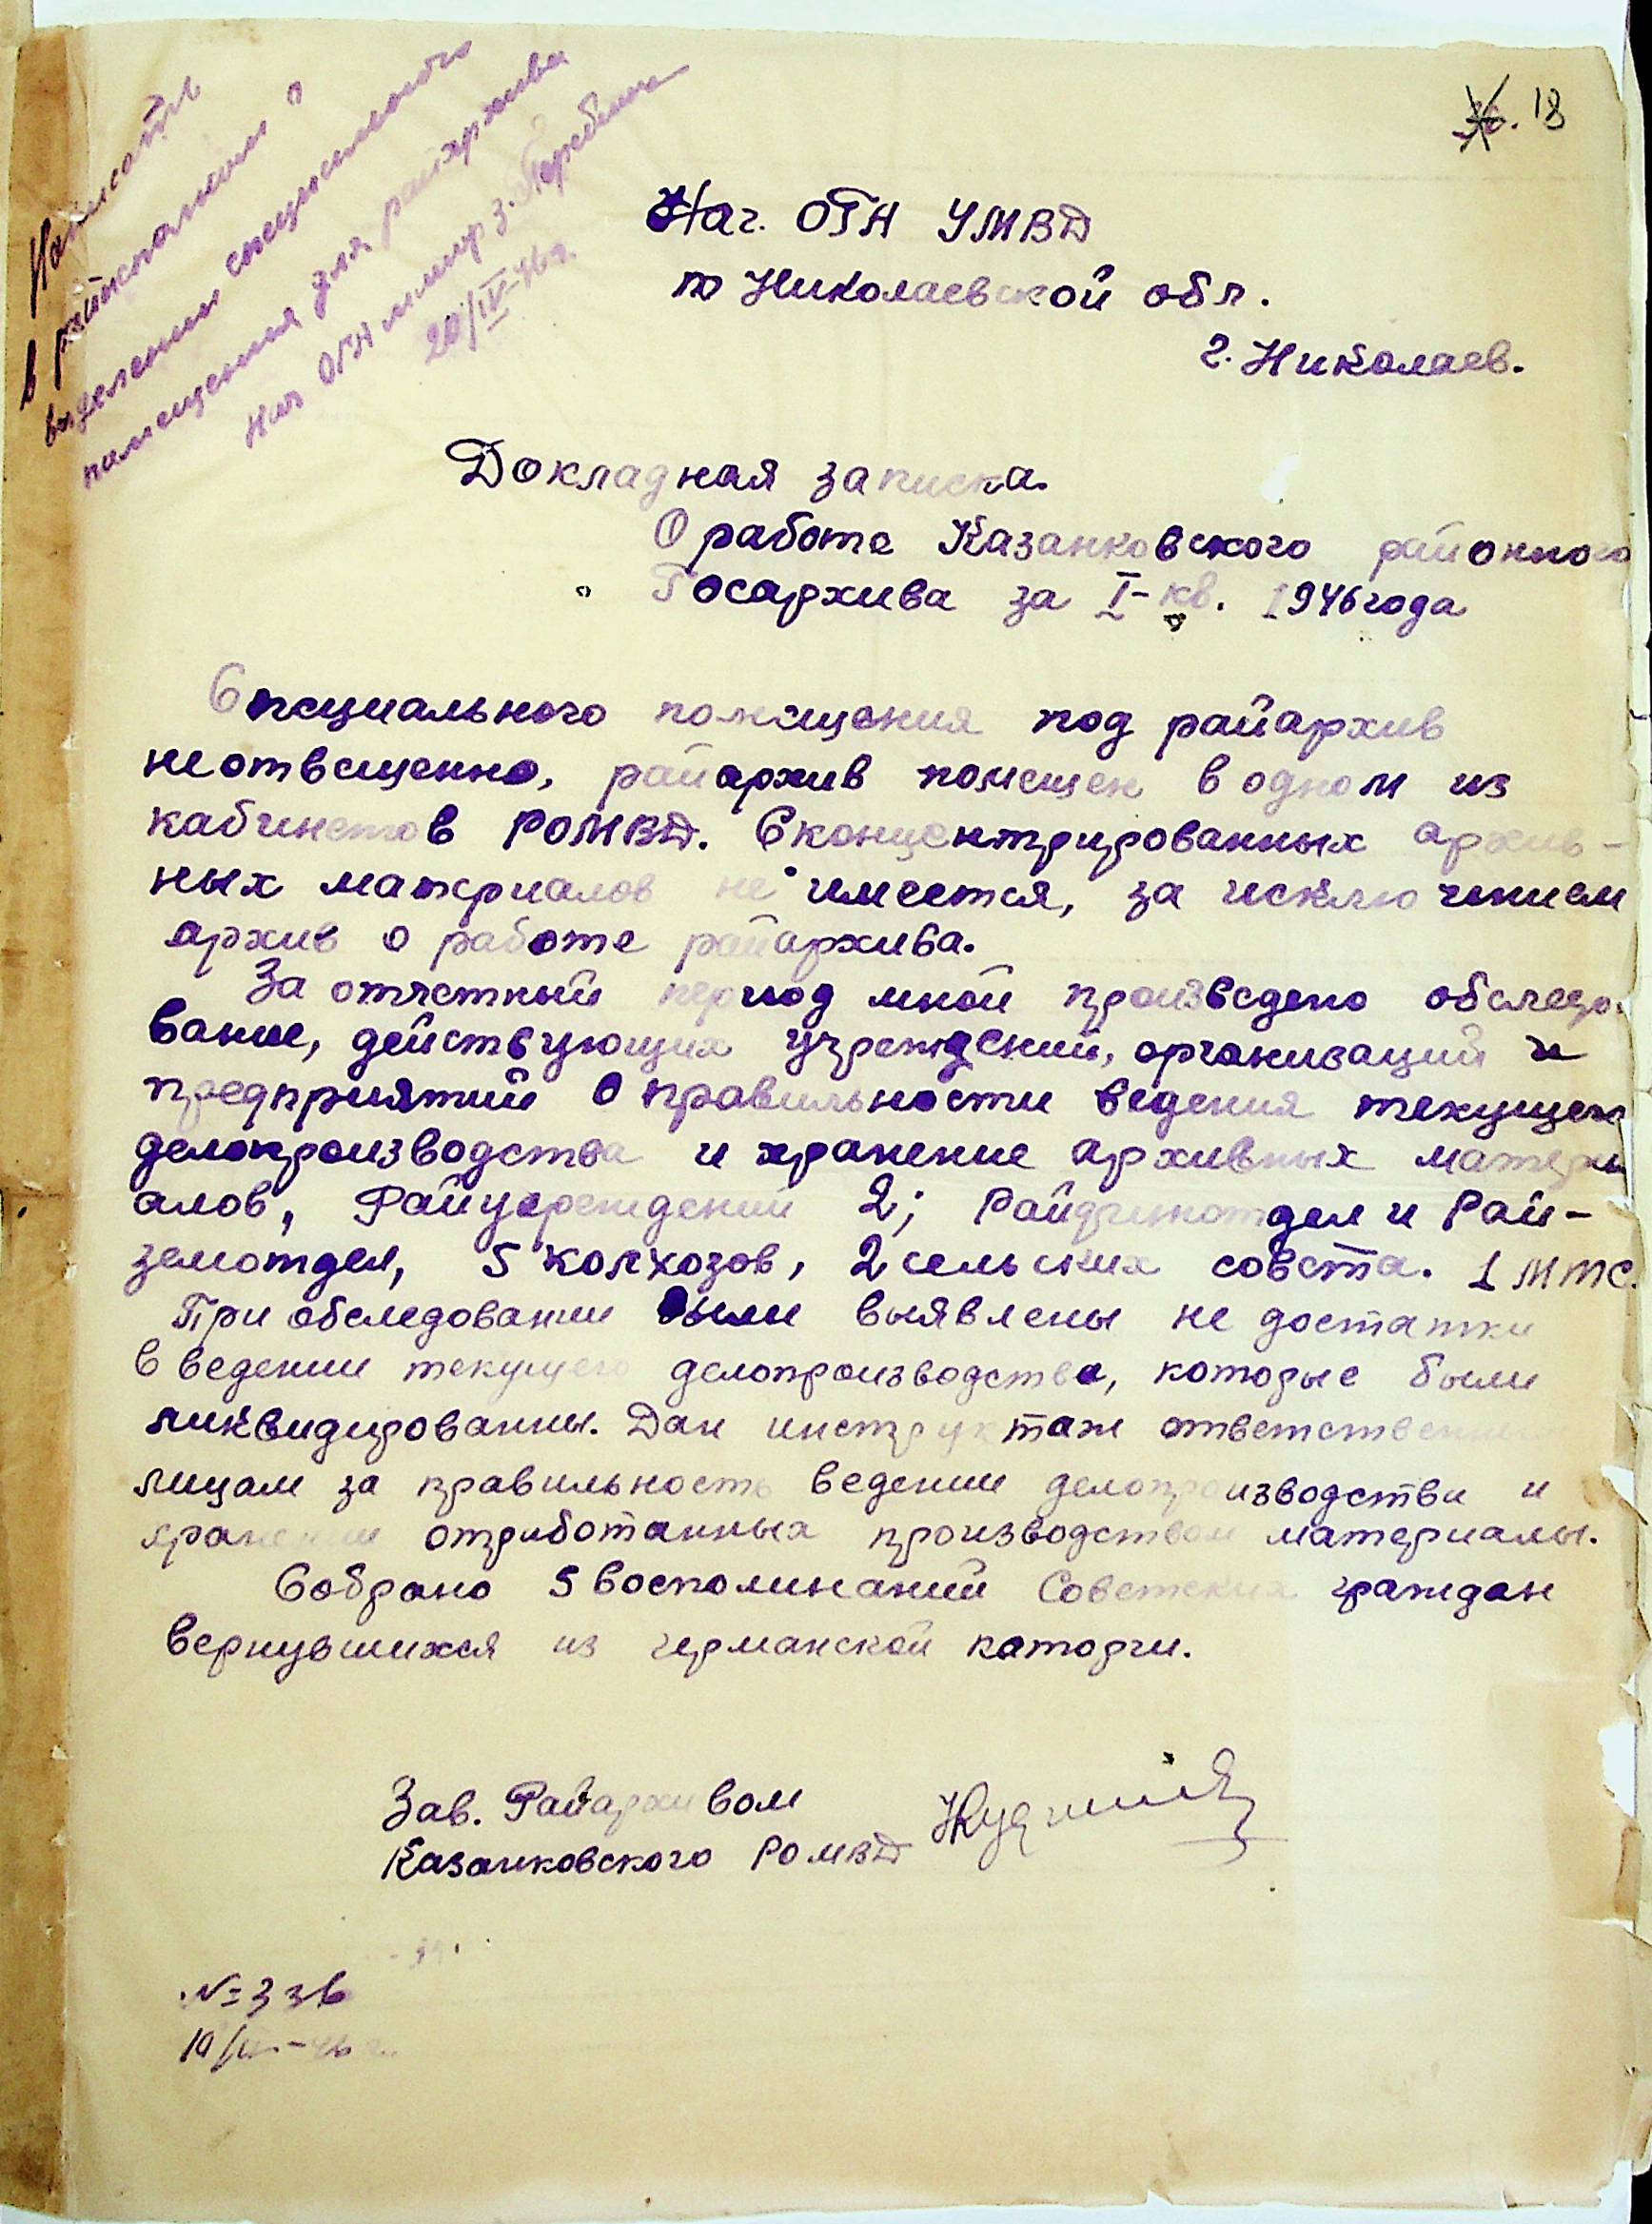 18
Написать
в райисполком о
выделении специального
помещения для райархива
Нач ОГА
20/IV-46г.
Нач. ОГА УМВД
по Николаевской обл.
г. Николаев.
Докладная записка.
О работе Казанковского районного
Госархива за I-кв. 1946 года
Специального помещения под райархив
неотвещенно, райархив помещен в одном из
кабинетов РОМВД. Сконцентрированных архив-
ных материалов не имеется, за исключением
архив о работе райархива.
За отчетный период мной произведено обследо-
вание, действующих учреждений, организаций и
предприятий о правильности ведения текущего
делопроизводства и хранение архивных матери
алов, Райучреждений 2; Райфинотдел и Рай-
земотдел, 5 колхозов, 2 сельских совета. 1 МТС.
При обследовании были выявлены не достатки
в ведении текущего делопроизводства, которые были
ликвидированны. Дан инструктаж ответственным
лицам за правильность ведении делопроизводства и
хранении отработанных производством материалы.
Собрано 5 воспоминаний Советских граждан
вернувшихся из германской каторги.
Зав. Райархивом
Казанковского РОМВД
№ 336